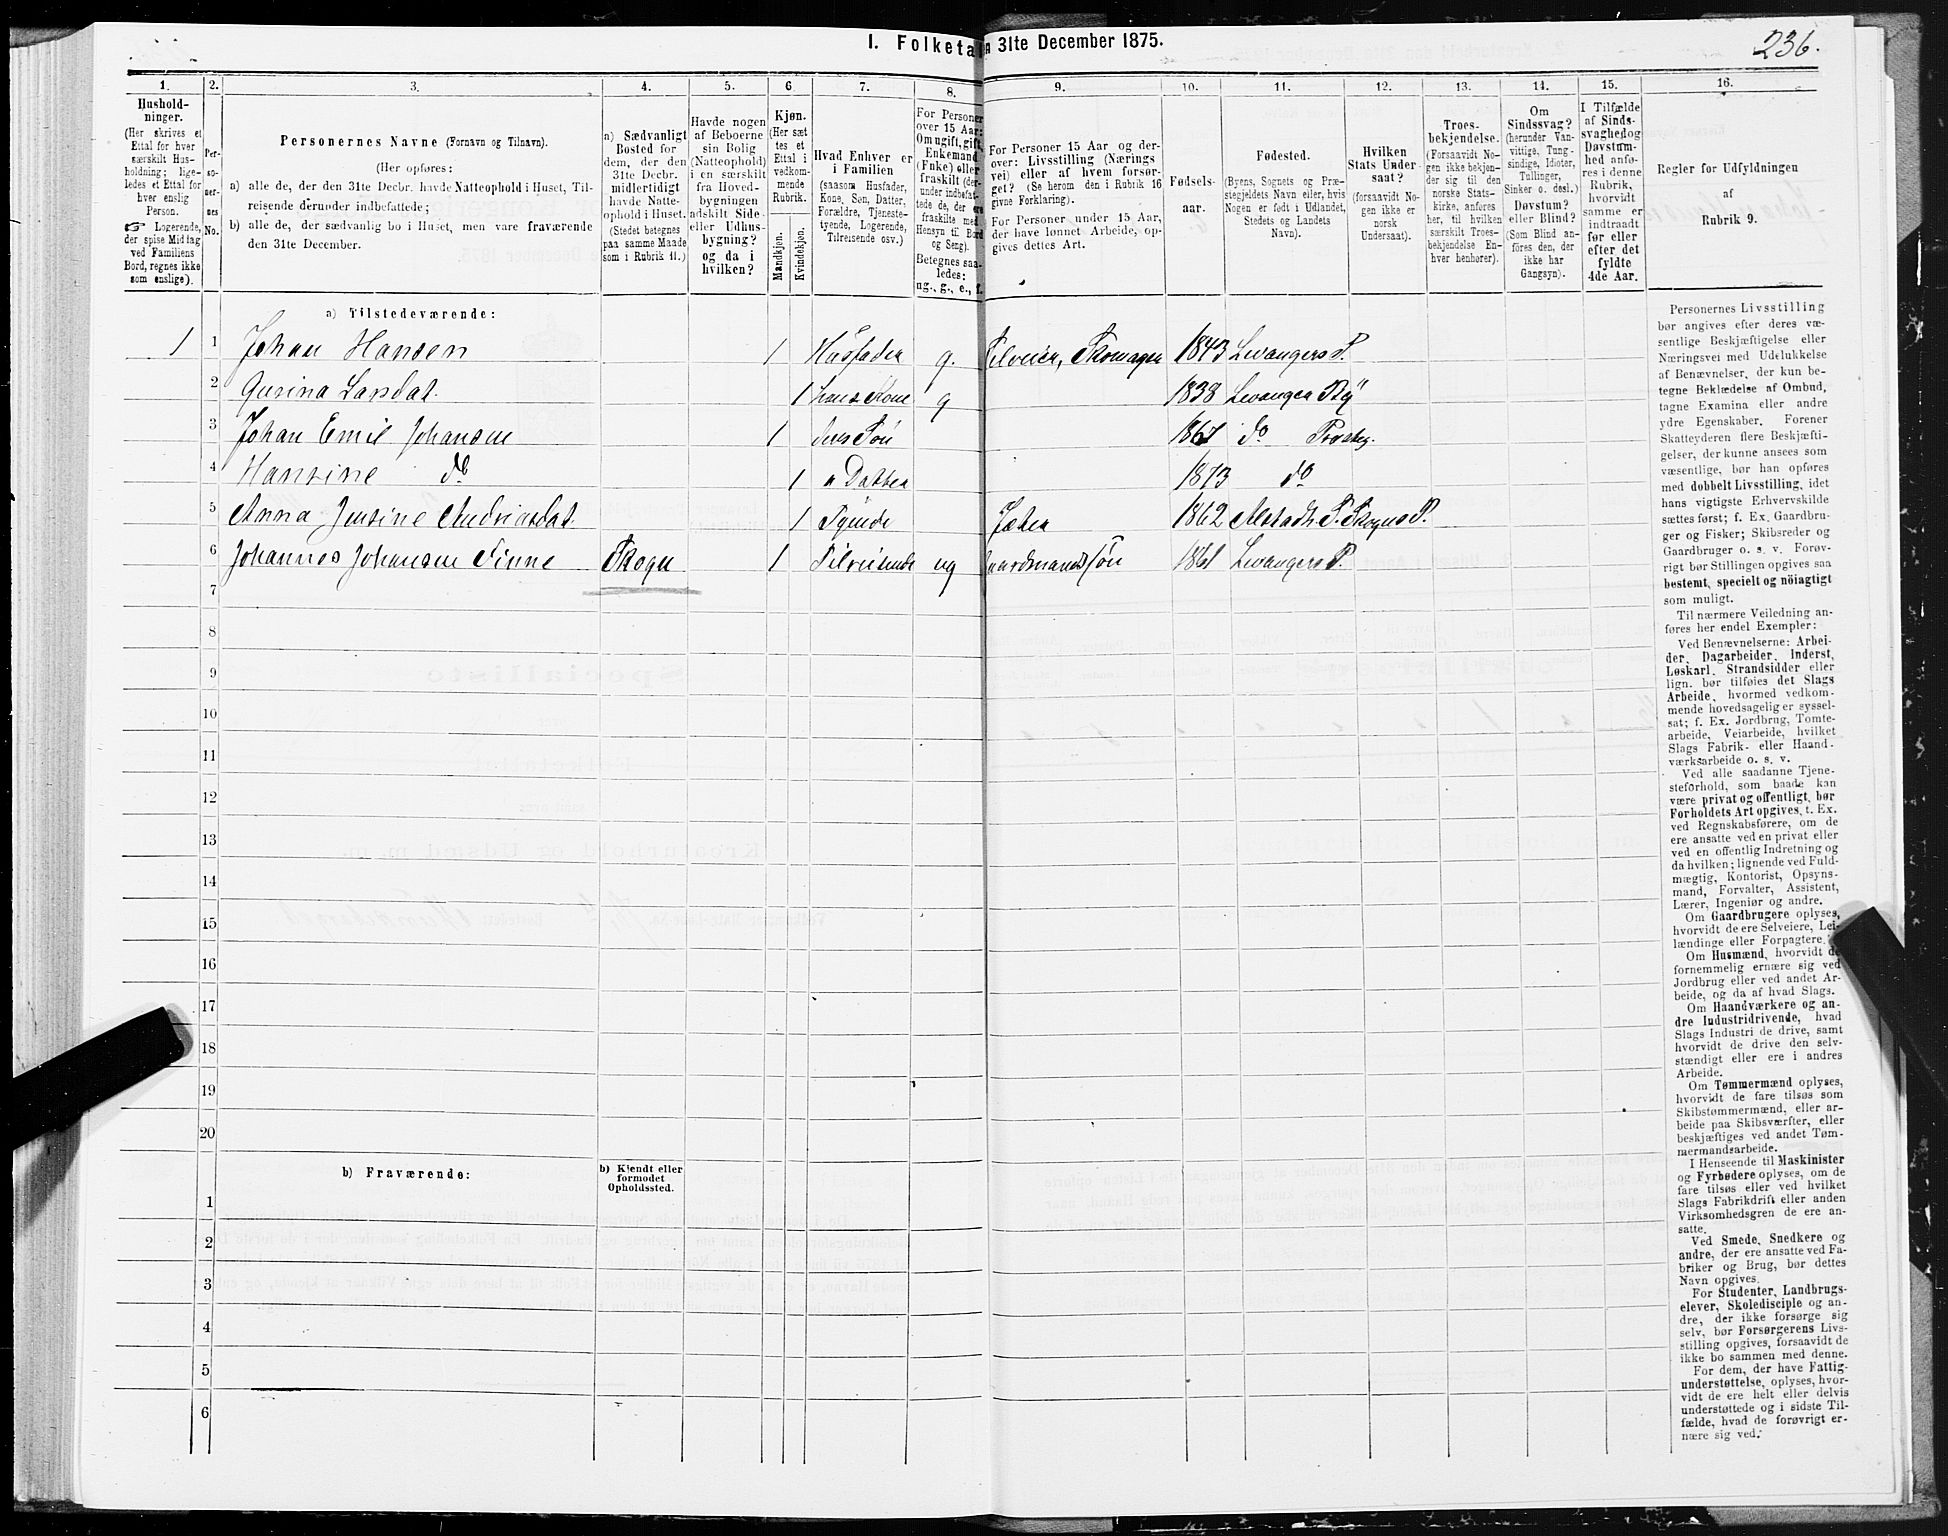 I. Folketa n 31te December 1875.
236.
1. 2. 3. 4. 5. 6. 7. 8. 9. 10. 11. 12. 13. 14. 15. 16.
Hushold-
ninger.
(Her skrives et
Ettal for hver
særskilt Hus-
holdning; lige-
ledes et Ettal for
hver enslig
Person.
☞ Logerende,
der spise Middag
ved Familiens
Bord, regnes ikke
som enslige).
Per-
so-
ner-
nes
No.
Personernes Navne (Fornavn og Tilnavn).
(Her opføres:
a) alle de, der den 31te Decbr. havde Natteophold i Huset, Til-
reisende derunder indbefattede;
b) alle de, der sædvanlig bo i Huset, men vare fraværende
den 31te December.
a) Sædvanligt
Bosted for
dem, der den
31te Decbr.
midlertidigt
havde Natte-
ophold i Huset.
(Stedet betegnes
paa samme Maade
som i Rubrik 11.)
Havde nogen
af Beboerne
sin Bolig
(Natteophold)
i en særskilt
fra Hoved-
bygningen
adskilt Side-
eller Udhus-
bygning?
og da i
hvilken?
Kjøn.
(Her sæt
tes et
Ettal i
vedkom-
mende
Rubrik.
Mandkjøn.
Kvindekjøn.
Hvad Enhver er
i Familien
(saasom Husfader,
Kone, Søn, Datter,
Forældre, Tjeneste-
tyende, Logerende,
Tilreisende osv.)
For Personer
over 15 Aar:
Om ugift, gift,
Enkemand
(Enke) eller
fraskilt (der-
under indbefat-
tede de, der ere
fraskilte med
Hensyn til Bord
og Seng).
Betegnes saa-
ledes:
ug., g., e., f.
For Personer 15 Aar og der-
over: Livsstilling (Nærings
vei) eller af hvem forsør-
get? (Se herom den i Rubrik 16
givne Forklaring).
For Personer under 15 Aar,
der have lønnet Arbeide, op-
gives dettes Art.
Fødsels-
aar.
Fødested.
(Byens, Sognets og Præ-
stegjeldets Navn eller, hvis
Nogen er født i Udlandet,
Stedets og Landets
Navn).
Hvilken
Stats Under-
saat?
(forsaavidt No-
gen ikke er
norsk
Undersaat).
Troes-
bekjendelse.
(Forsaavidt No-
gen ikke bekjen-
der sig til den
norske Stats-
kirke, anføres
her, til hvilken
særskilt Troes-
bekjendelse En-
hver henhører).
Om
Sindssvag?
(herunder Van-
vittige, Tung-
sindige, Idioter,
Tullinger,
Sinker o. desl.)
Døvstum?
eller Blind?
(Som Blind an-
føres den, der
ikke har
Gangsyn).
I Tilfælde
af Sinds-
svaghed og
Døvstum-
hed anfø-
res i denne
Rubrik,
hvorvidt
samme er
indtraadt
før eller
efter det
fyldte
4de Aar.
Regler for Udfyldningen
af
Rubrik 9.
a) Tilstedeværende:
1 1 Johan Hansen 1 Husfader g. Selveier, Skomager 1843 Levangers P.
2 Gurina Larsdat. 1 hans Kone g 1838 Levanger By
3 Johan Emil Johansen 1 deres Søn 1867 do
4 Hansine do 1 " Datter 1873 do
5 Anna Jensine Andriasdat. 1 Tyende 1862 Alstadh. S. Skogns P.
6 Johannes Johansen Finne Skogn 1 Tilreisende ug Gaardmandssøn 1861 Levangers P.
7
8
9
10
11
12
13
14
15
16
17
18
19
20
b) Fraværende:
b) Kjendt eller
formodet
Opholdssted.
1
2
3
4
5
6
Personernes Livsstilling
bør angives efter deres væ-
sentlige Beskjæftigelse eller
Næringsvei med Udelukkelse
af Benævnelser, der kun be-
tegne Beklædelse af Ombud,
tagne Examina eller andre
ydre Egenskaber. Forener
Skatteyderen flere Beskjæfti-
gelser, der kunne ansees som
væsentlige, bør han opføres
med dobbelt Livsstilling, idet
hans vigtigste Erhvervskilde
sættes først; f. Ex. Gaardbru-
ger og Fisker; Skibsreder og
Gaardbruger o. s. v. Forøv-
rigt bør Stillingen opgives saa
bestemt, specielt og nöiagtigt
som muligt.
Til nærmere Veiledning an-
føres her endel Exempler:
Ved Benævnelserne: Arbei-
der, Dagarbeider, Inderst,
Løskarl, Strandsidder eller
lign. bør tilføies det Slags
Arbeide, hvormed vedkom-
mende hovedsagelig er syssel-
sat; f. Ex. Jordbrug, Tomte-
arbeide, Veiarbeide, hvilket
Slags Fabrik- eller Haand-
værksarbeide o. s. v.
Ved alle saadanne Tjene-
steforhold, som baade kan
være privat og offentligt, bør
Forholdets Art opgives, t. Ex.
ved Regnskabsførere, om de
ere ansatte ved en privat eller
ved en offentlig Indretning og
da hvilken; lignende ved Fuld-
mægtig, Kontorist, Opsyns-
mand, Forvalter, Assistent,
Lærer, Ingeniør og andre.
Om Gaardbrugere oplyses,
hvorvidt de ere Selveiere, Lei-
lændinge eller Forpagtere.
Om Husmænd, hvorvidt de
fornemmelig ernære sig ved
Jordbrug eller ved andet Ar-
beide, og da af hvad Slags.
Om Haandværkere og an-
dre Industridrivende, hvad
Slags Industri de drive, samt
hvorvidt de drive den selv-
stændigt eller ere i andres
Arbeide.
Om Tømmermænd oplyses,
hvorvidt de fare tilsøs som
Skibstømmermænd, eller ar-
beide paa Skibsværfter, eller
beskjæftiges ved andet Tøm-
mermandsarbeide.
I Henseende til Maskinister
og Fyrbødere oplyses, om de
fare tilsøs eller ved hvilket
Slags Fabrikdrift eller anden
Virksomhedsgren de ere an-
satte.
Ved Smede, Snedkere og
andre, der ere ansatte ved Fa-
briker og Brug, bør dettes
Navn opgives.
For Studenter, Landbrugs-
elever, Skoledisciple og an-
dre, der ikke forsørge sig
selv, bør Forsørgerens Livs-
stilling opgives, forsaavidt de
ikke bo sammen med denne.
For dem, der have Fattig-
understøttelse, oplyses, hvor-
vidt de ere helt eller delvis
understøttede og i sidste Til-
fælde, hvad de forøvrigt er-
nære sig ved.